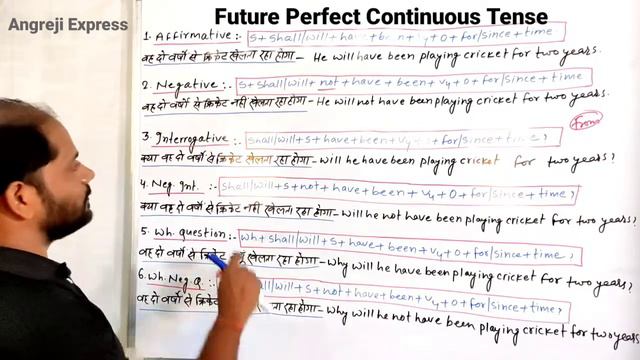 Angreji Express
Future Perfect Continuous Tense
1. Affirmative:- S+shall/will+have+been+V4+O+for/since+time
वह दो वर्षों से क्रिकेट खेलता रहा होगा - He will have been playing cricket for two years.
2. Negative:- S+shall/will+not+have+been+V4+O+for/since+time
वह दो वर्षों से क्रिकेट नहीं खेलता रहा होगा - He will not have been playing cricket for two years.
from
3. Interrogative:- Shall/will+S+have+been+V4+O+for/since+time?
क्या वह दो वर्षों से क्रिकेट खेलता रहा होगा - Will he have been playing cricket for two years?
4. Neg. Int. :- Shall/will+S+not+have+been+V4+O+for/since+time?
क्या वह दो वर्षों से क्रिकेट नहीं खेलता रहा होगा - Will he not have been playing cricket for two years?
5. Wh. question:- Wh+shall/will+S+have+been+V4+O+for/since+time?
वह दो वर्षों से खेलता रहा होगा - Why will he have been playing cricket for two years?
6. Wh. Neg. Q. :- /will+S+not+have+been+V4+O+for/since+time?
वह दो वर्षों से क्रिकेट रहा होगा - Why will he not have been playing cricket for two years